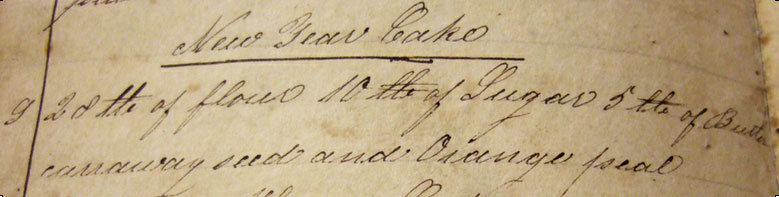 New Year Cake
9 28 lb of flour 10 lb of Sugar 5 lb of Butter
carraway seed and Orange peal